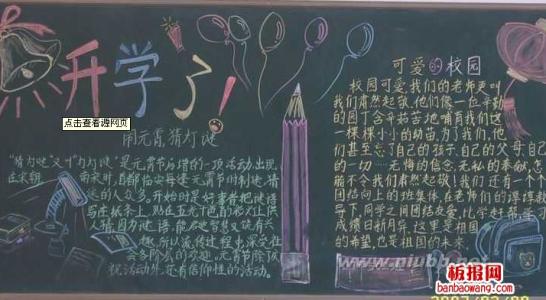 开学了!
点击查看源网页
闹元宵,猜灯谜
"猜灯谜"又叫"打灯谜"是元宵节后增的一项活动,出现
在宋朝。南宋时,首都临安每逢元宵节时制迷,猜
谜的人众多。开始时是好事者把谜语
写在纸条上,贴在五光十色的彩灯上供
人猜。因为谜语能启迪智慧又饶有兴
趣,所以流传过程中深受社
会各阶层的欢迎。元宵节除庆
祝活动外,还有信仰性的活动。
可爱的校园
校园可爱,我们的老师更叫
我们肃然起敬,他们像一位辛勤
的园丁含辛茹苦地哺育我们这
一棵棵小小的幼苗,为了我们,他
们甚至忘了自己的孩子,自己的父母,自己
的一切——无悔的信念,无私的奉献,怎
能不令我们肃然起敬!我们还有一个个
团结向上的班集体,在老师们的谆谆教
导下,同学之间团结友爱,比学赶帮,学习
成绩日新月异,这里是祖国
的希望,也是祖国的未来。
板报网
banbaowang.com